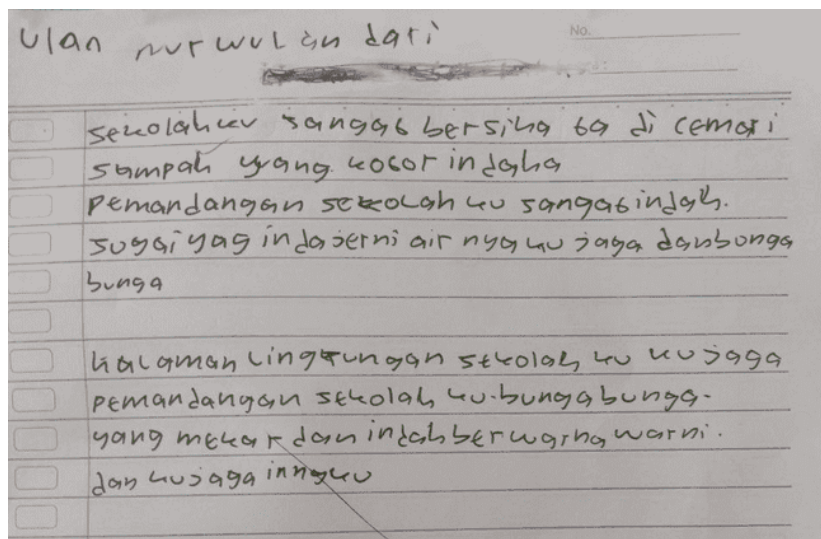 Ulan nurwulan dari
No.
sekolahku sangat bersiha ta di cemari
sampah yrang kotor indaha
pemandangan sekolah ku sangat indah.
sugai yag inda jerni air nya ku jaga dan bonga
bunga
halaman lingkungan sekolah ku ku jaga
pemandangan sekolah ku. bunga bunga.
yang mekar dan indah berwarna warni.
dan ku jaga